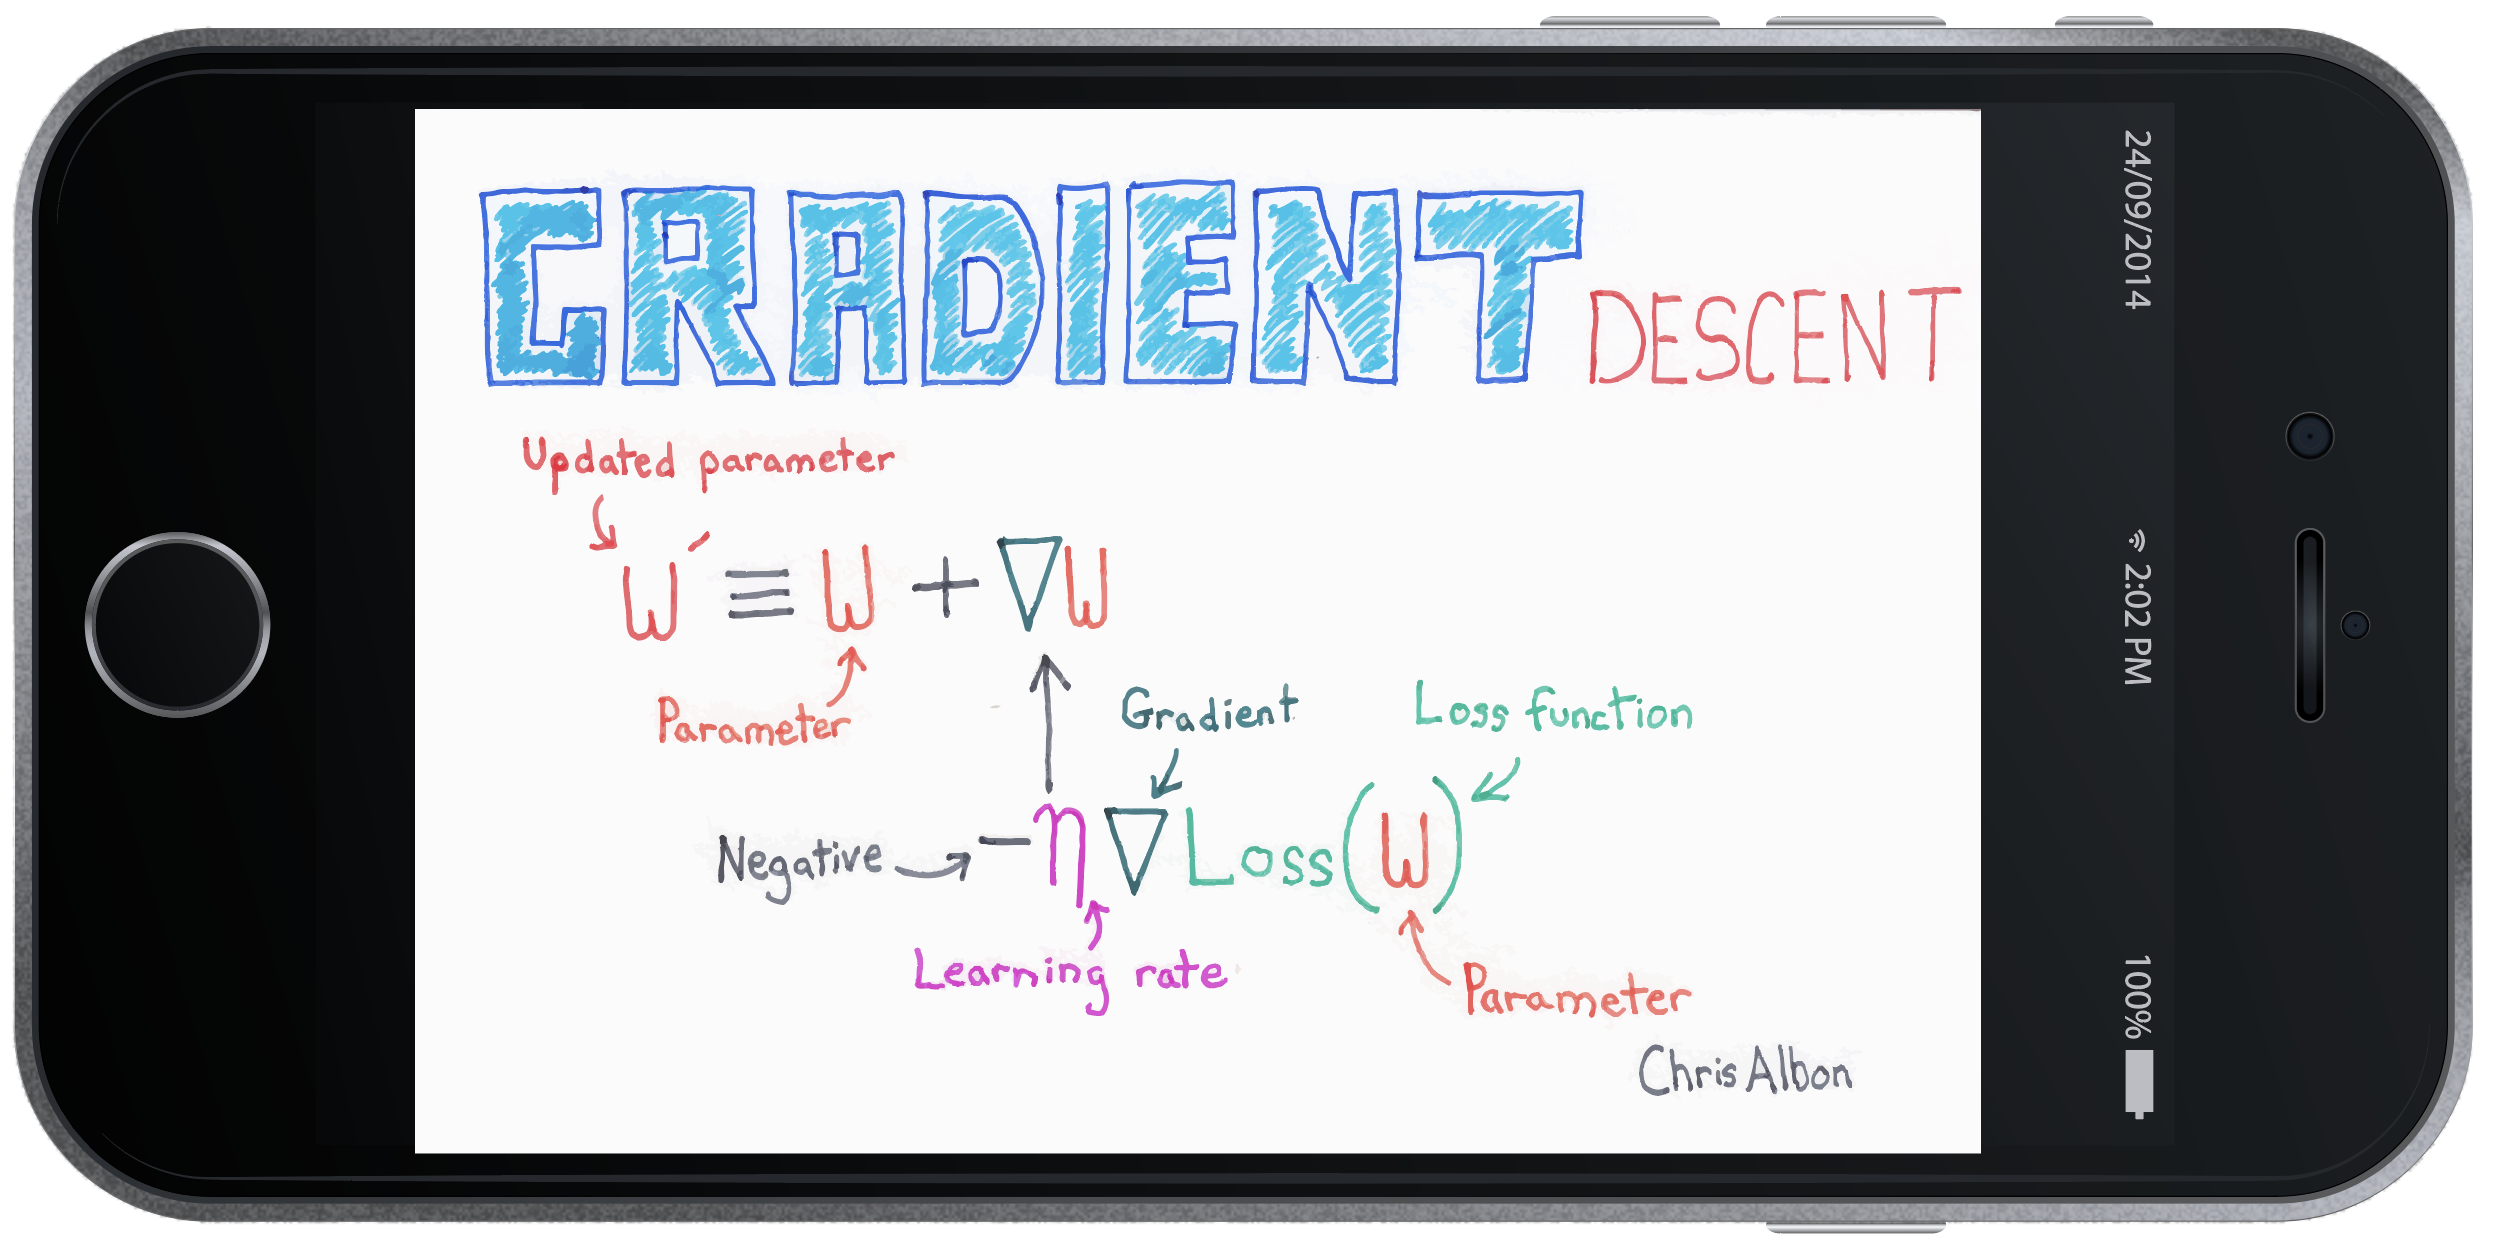 GRADIENT DESCENT
Updated parameter
W′ ≡ W + ∇W
Parameter
Gradient
Loss function
Negative
−η∇Loss(W)
Learning rate
Parameter
ChrisAlbon
24/09/2014
2:02 PM
100%